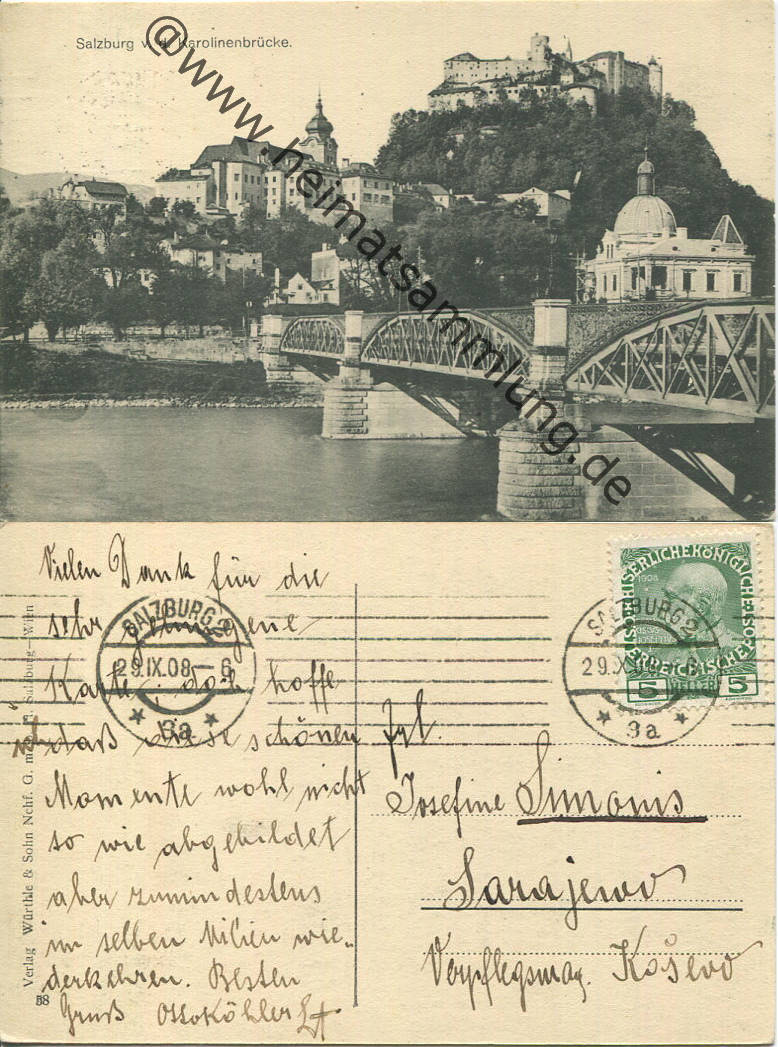 Salzburg v. d. Karolinenbrücke.
@www.heimatsammlung.de
Vielen Dank für die
sehr gelungene
Karte; doch hoffe
ich daß diese schönen
Momente wohl nicht
so wie abgebildet
aber zumindestens
im selben Milieu wie-
derkehren. Besten
Gruß Ottoköhler Lt
SALZBURG 2
29.IX.08-6
* 9a *
SALZBURG 2
29.IX. -6
* 9a *
KAISERLICHE KÖNIGLICHE
1908
ÖSTERREICHISCHE POST
5 HELLER 5
Frl.
Josefine Simonis
Sarajewo
Verpflegsmag. Koševo
Verlag Würthle & Sohn Nchf. G. m. b. H. Salzburg-Wien
58